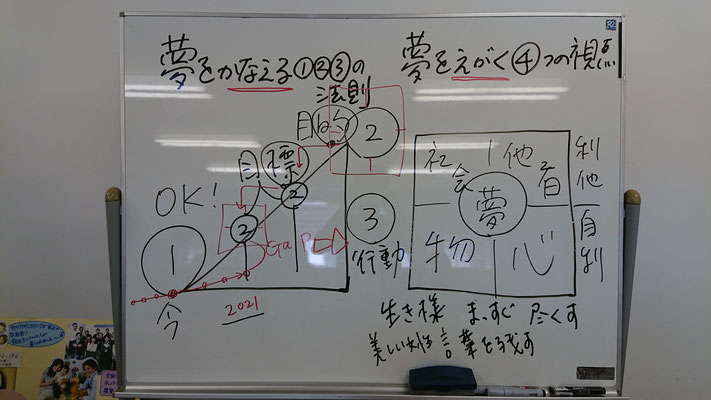 夢をかなえる①②③の
法則
夢をえがく④つの視点
目的
②
目標
②
②
OK!
①
今
Gap
③
行動
2021
社会
他者
夢
物
心
利他
自利
生き様 まっすぐ 尽くす
美しい 言葉を残す